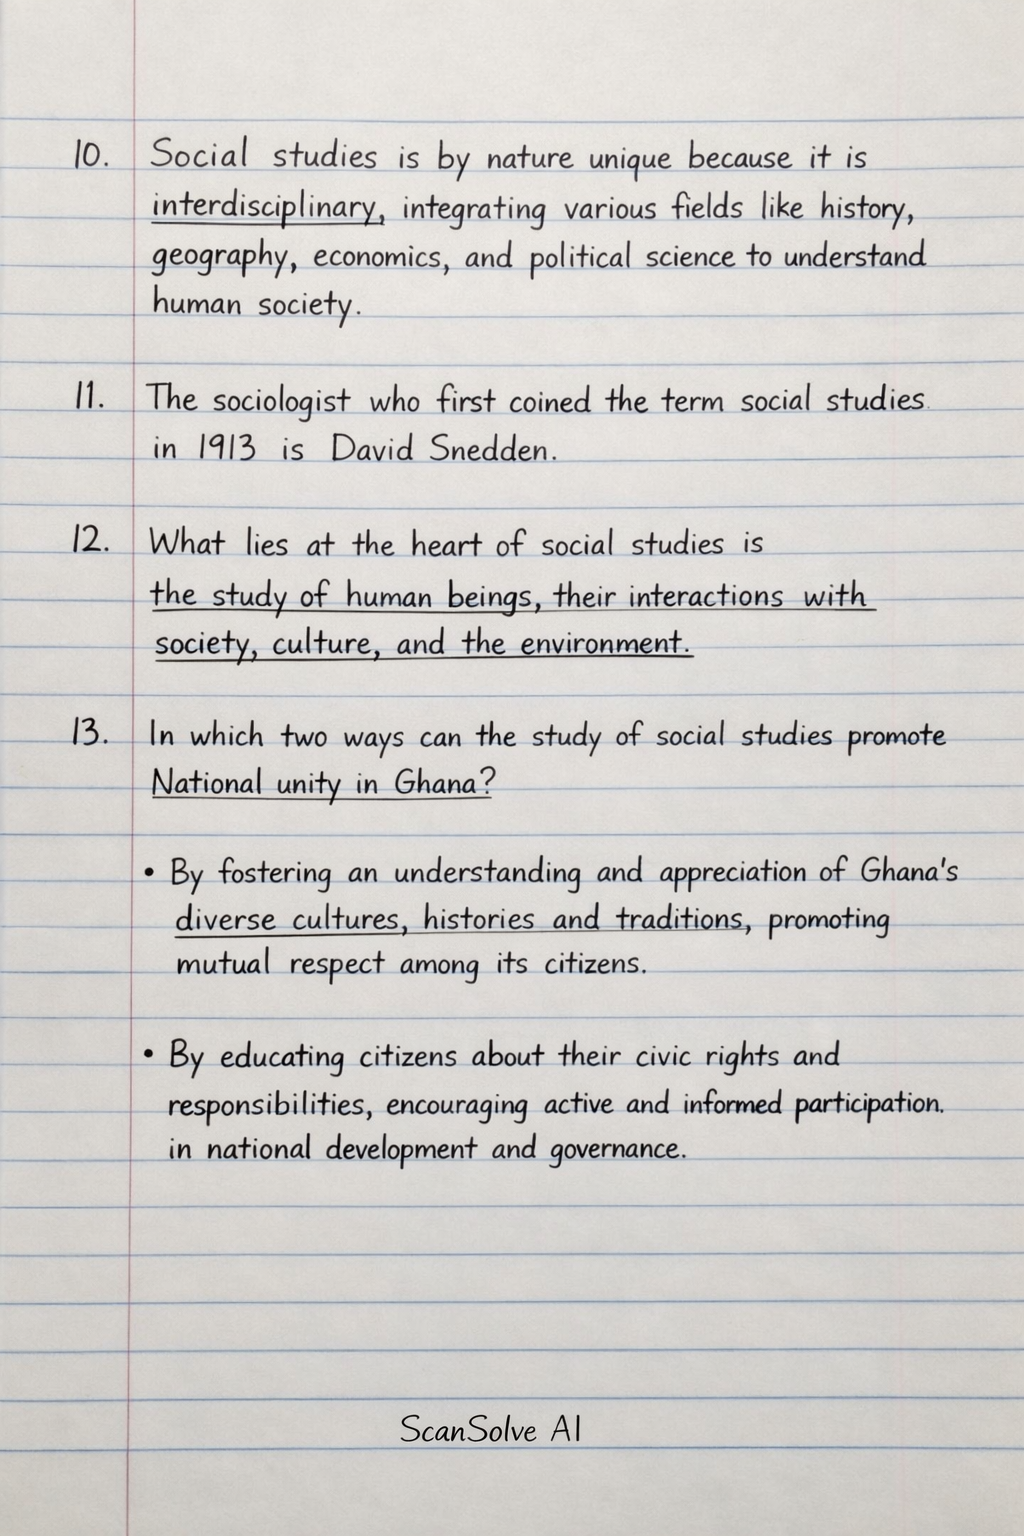 10. Social studies is by nature unique because it is
interdisciplinary, integrating various fields like history,
geography, economics, and political science to understand
human society.
11. The sociologist who first coined the term social studies.
in 1913 is David Snedden.
12. What lies at the heart of social studies is
the study of human beings, their interactions with
society, culture, and the environment.
13. In which two ways can the study of social studies promote
National unity in Ghana?
• By fostering an understanding and appreciation of Ghana's
diverse cultures, histories and traditions, promoting
mutual respect among its citizens.
• By educating citizens about their civic rights and
responsibilities, encouraging active and informed participation.
in national development and governance.
ScanSolve AI